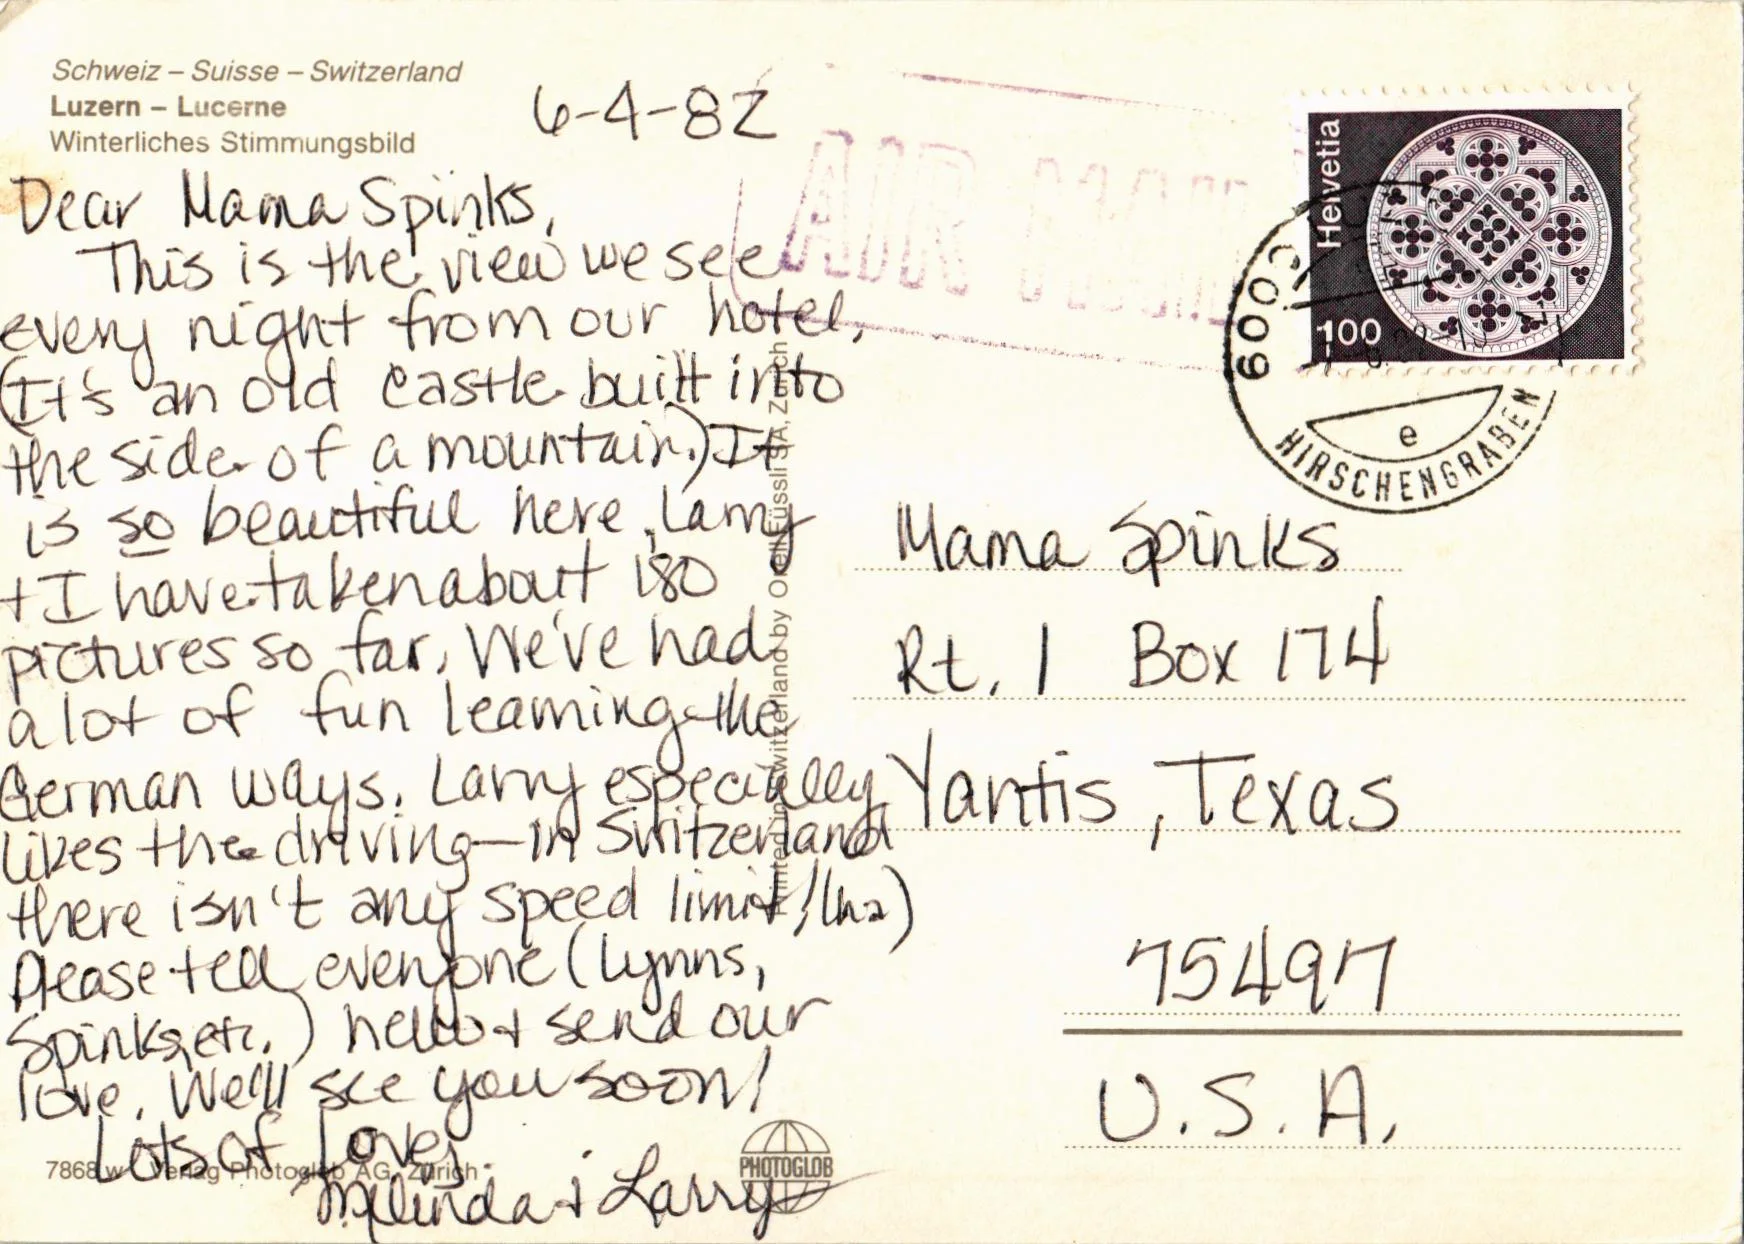 Schweiz – Suisse – Switzerland
Luzern – Lucerne
Winterliches Stimmungsbild
6-4-82
AIR
Helvetia
100
6009
HIRSCHENGRABEN
e
Dear Mama Spinks,
This is the view we see
every night from our hotel,
(It's an old castle built into
the side of a mountain.) It
is so beautiful here, Larry
+ I have taken about 180
pictures so far. We've had
a lot of fun learning the
German ways. Larry especially
likes the driving—in Switzerland
there isn't any speed limit! (ha)
Please tell everyone (Lynns,
Spinks, etc.) hello + send our
love. We'll see you soon!
Lots of Love,
Melinda + Larry
Mama Spinks
Rt. 1 Box 174
Yantis, Texas
75497
U.S.A.
Printed in Switzerland by Orell Füssli SA, Zürich
7868 w Verlag Photoglob AG, Zürich
PHOTOGLOB